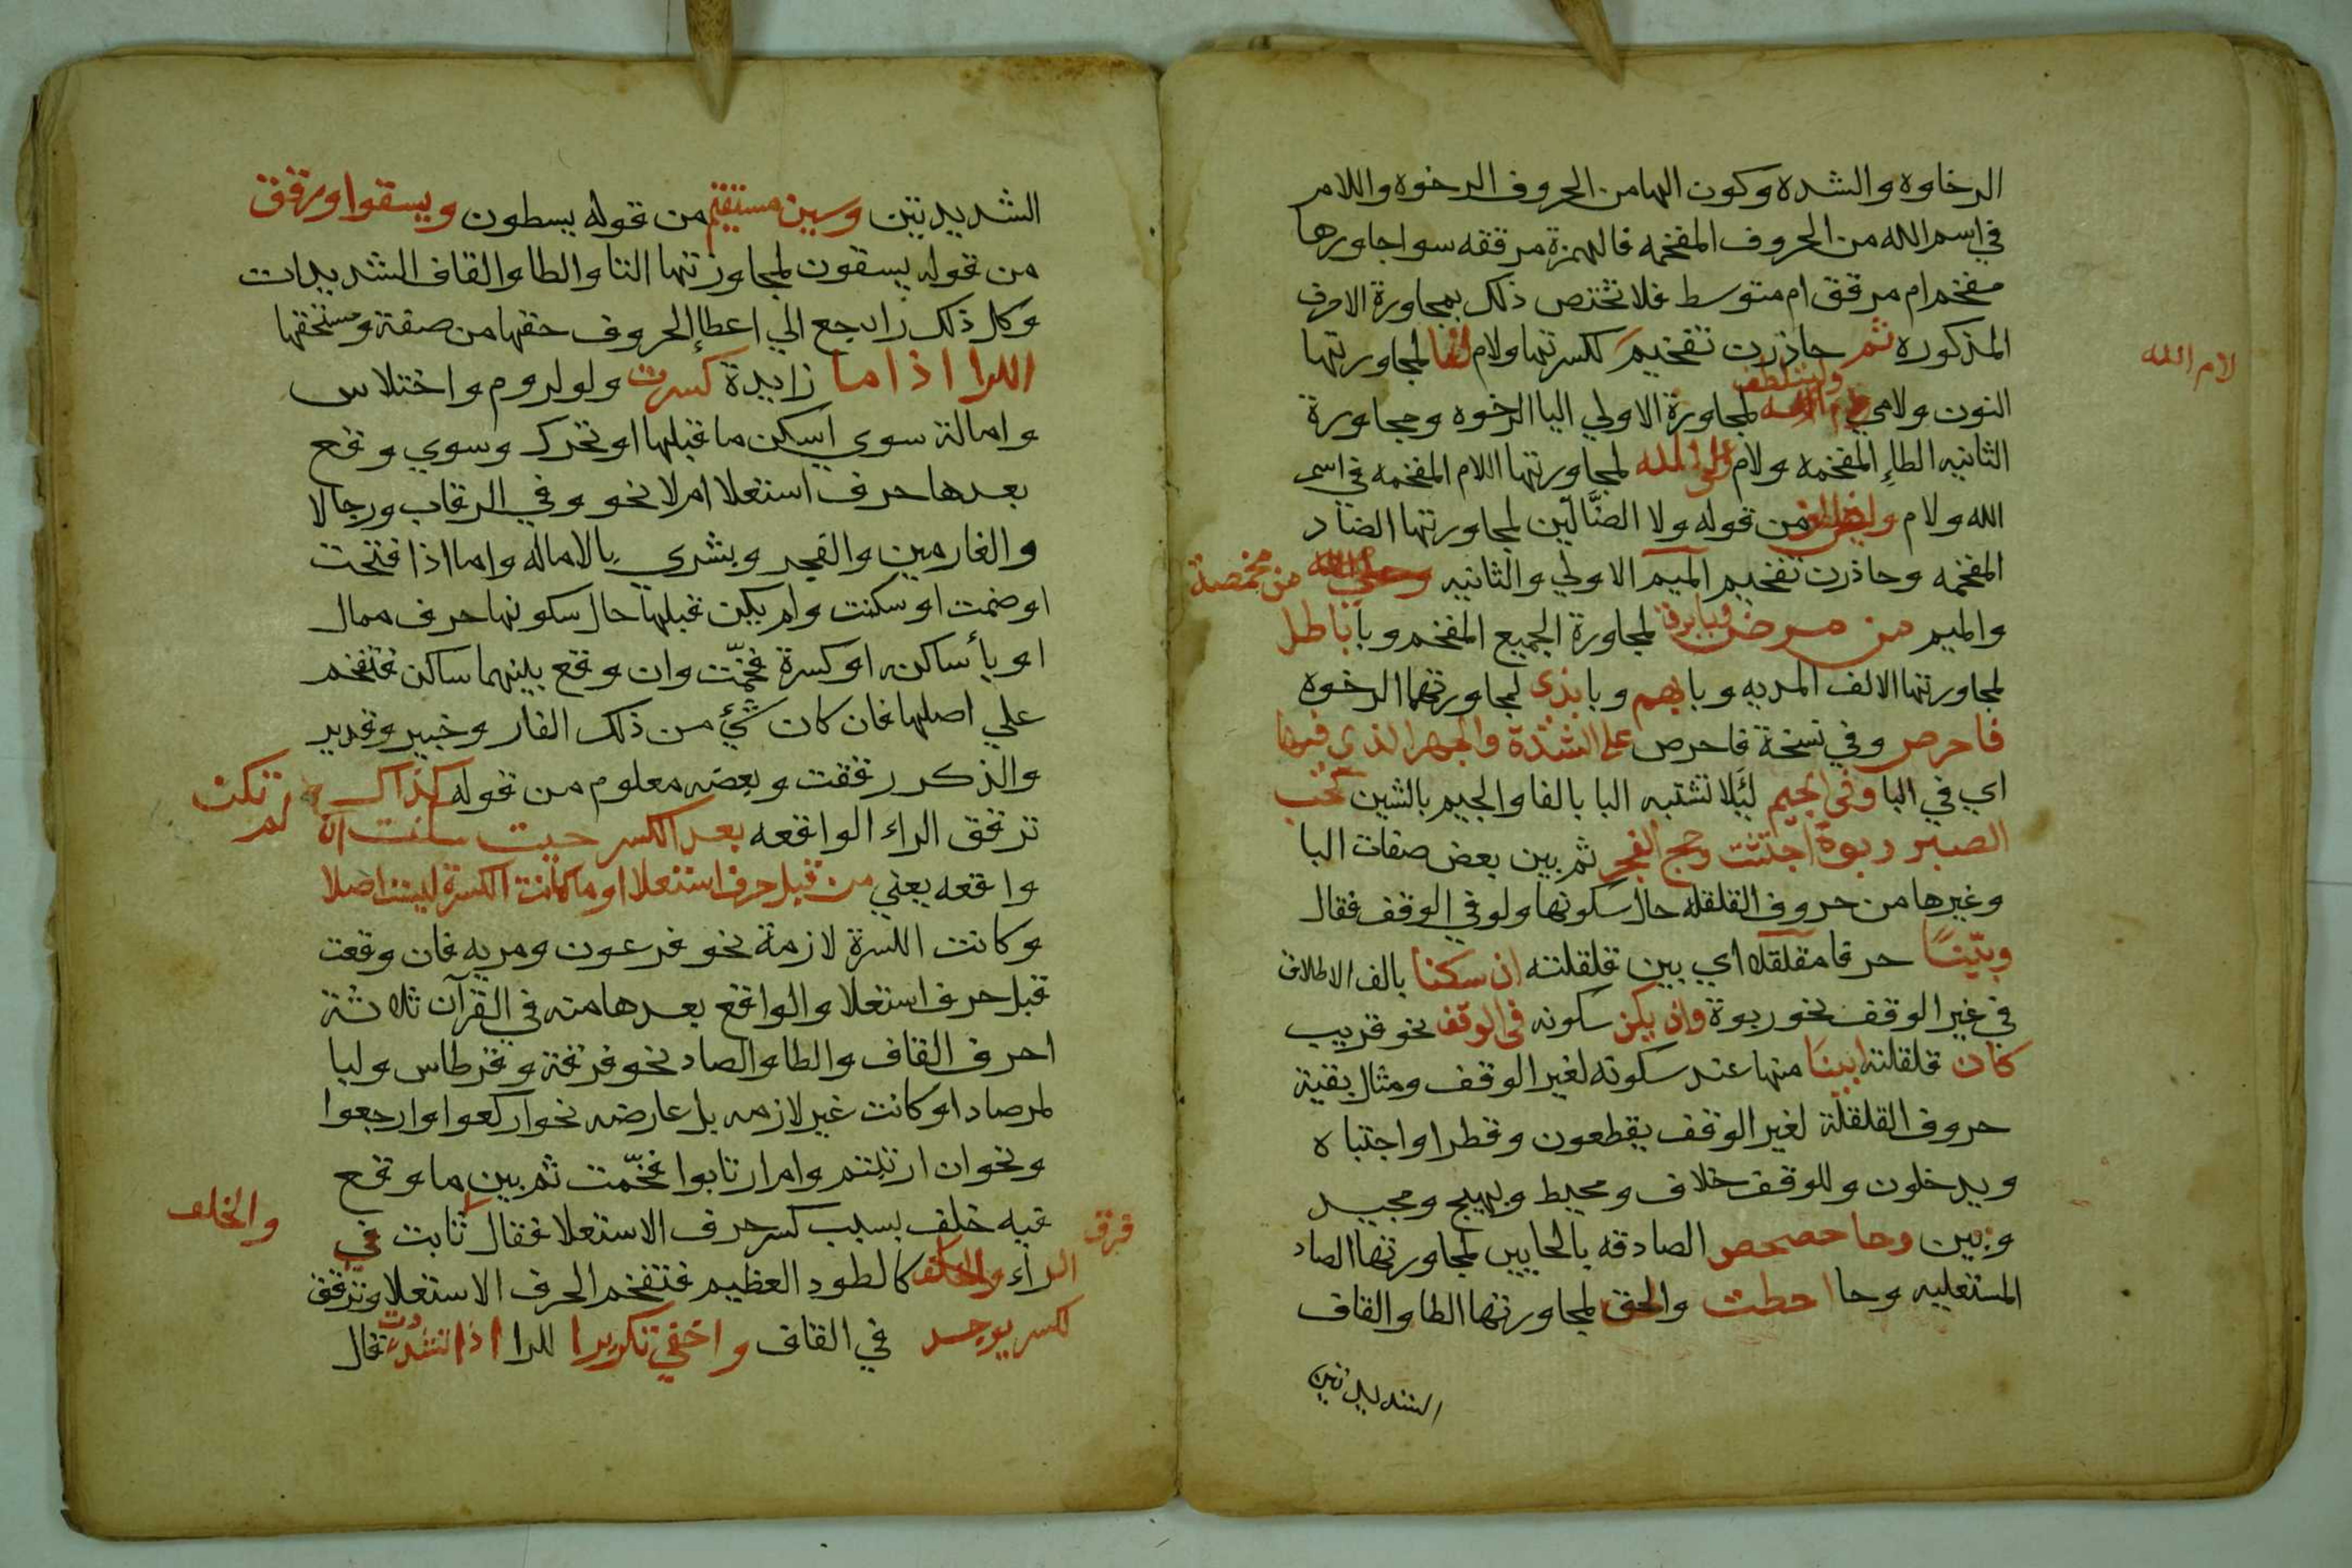 الرخاوه والشده وكون الهامن الحروف الرخوه واللام
في اسم الله من الحروف المفخمه فالهمزة مرققه سواجاورها
مفخم ام مرقق ام متوسط فلا تختص ذلك بمجاورة الاحرف
المذكوره ثم حاذرت تفخيم لكسرتها ولام لنا لمجاورتها
لام الله
النون ولامي وليتلطف لمجاورة الاولي اليا الرخوه ومجاورة
الثانيه الطاء المفخمه ولام على الله لمجاورتها اللام المفخمه في اسم
الله ولام ولا الض من قوله ولا الضَّالّين لمجاورتها الضاد
المفخمه وحاذرت تفخيم الميم الاولي والثانيه من مخمصة
والميم من مرض وبا برق لمجاورة الجميع المفخم وبا باطل
لمجاورتها الالف المديه وبا بهم وبا بذى لمجاورتهما الرخوه
فاحرص وفي نسخة فاحرص على الشدة والجهر الذي فيها
اي في البا وفي الجيم ليَلا تشتبه البا بالفا والجيم بالشين كحب
الصبر ربوة اجتثت وحج الفجر ثم بين بعض صفات البا
وغيرها من حروف القلقله حال سكونها ولو في الوقف فقال
وبيّنًا حرفا مقلقله اي بين قلقلته ان سكنا بالف الاطلاق
في غير الوقف نحو ربوة وان يكن سكونه في الوقف نحو قريب
كان قلقلته ابينا منها عند سكونه لغير الوقف ومثال بقية
حروف القلقلة لغير الوقف يقطعون وقطرا واجتباه
ويدخلون وللوقف خلاف ومحيط وبهيج ومجيد
وبين وحا حصحص الصادقه بالحايين لمجاورتهما الصاد
المستعليه وحا احطت والحق لمجاورتها الطا والقاف
الشديدتين
الشديدتين وسين مستقيم من قوله يسطون ويسقوا ورقق
من قوله يسقون لمجاورتها التا والطا والقاف الشديدات
وكل ذلك راجع الي اعطاء الحروف حقها من صفة ومستحقها
الرا اذا ما زايدة كسرت ولو لروم واختلاس
وامالة سوي اسكن ما قبلها او تحرك وسوي وقع
بعدها حرف استعلا ام لا نحو وفي الرقاب ورجالا
والغارمين والفجر وبشري بالاماله واما اذا فتحت
اوضمت او سكنت ولم يكن قبلها حال سكونها حرف ممال
او يأ ساكنه او كسرة فخمّت وان وقع بينهما ساكن فتفخم
علي اصلها فان كان شئ من ذلك الفار وخبير وقدير
والذكر رققت وبعضه معلوم من قوله كذاك
ترقق الراء الواقعه بعد الكسر حيث سكنت ان لم تكن
واقعه يعني من قبل حرف استعلا او ما كانت الكسرة ليست اصلا
وكانت الكسرة لازمة نحو فرعون ومريه فان وقعت
قبل حرف استعلا والواقع بعدها منه في القرآن ثلاثة
احرف القاف والطا والصاد نحو فرقة وقرطاس ولبا
لمرصاد او كانت غير لازمه بل عارضه نحو اركعوا وارجعوا
ونحو ان ارتبتم وام ارتابوا فخّمت ثم بين ما وقع
فيه خلف بسبب كسر حرف الاستعلا فقال ثابت في
والخلف
فرق
الراء كالطود العظيم فتفخم الحرف الاستعلا وترقق
لكسر يوجد في القاف واخفي تكريرا للرا اذا تشدت قال